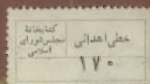 کتابخانهٔ
مجلس شورای
اسلامی
خطی اهدائی
۱۷۰